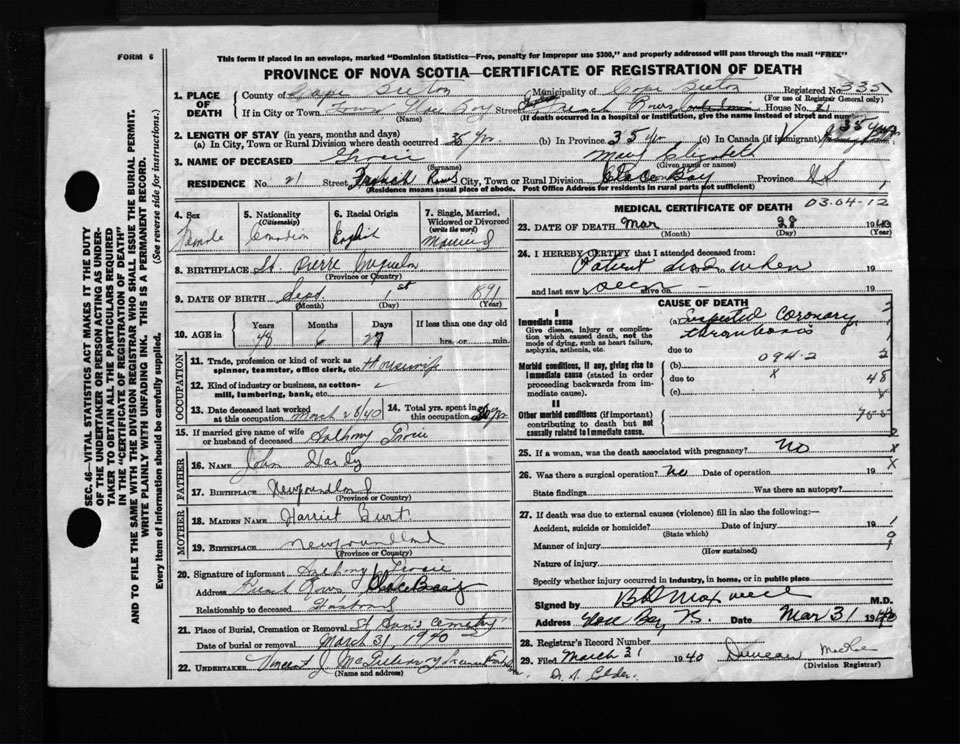 FORM 6
This form if placed in an envelope, marked "Dominion Statistics—Free, penalty for improper use $300," and properly addressed will pass through the mail "FREE"
PROVINCE OF NOVA SCOTIA—CERTIFICATE OF REGISTRATION OF DEATH
SEC. 46—VITAL STATISTICS ACT MAKES IT THE DUTY
OF THE UNDERTAKER OR PERSON ACTING AS UNDER-
TAKER TO OBTAIN ALL THE PARTICULARS REQUIRED
IN THE "CERTIFICATE OF REGISTRATION OF DEATH"
AND TO FILE THE SAME WITH THE DIVISION REGISTRAR WHO SHALL ISSUE THE BURIAL PERMIT.
WRITE PLAINLY WITH UNFADING INK. THIS IS A PERMANENT RECORD.
Every item of information should be carefully supplied. (See reverse side for instructions.)
1. PLACE OF DEATH
County of Cape Breton Municipality of Cape Breton Registered No. 335
(For use of Registrar General only)
If in City or Town Town Glace Bay Street French Rows House No. 21
(Name) (If death occurred in a hospital or institution, give the name instead of street and number)
2. LENGTH OF STAY (in years, months and days)
(a) In City, Town or Rural Division where death occurred 35 yr (b) In Province 35 yr (c) In Canada (if immigrant) 35 yrs
3. NAME OF DECEASED Mary Elizabeth
(Surname) (Given name or names)
RESIDENCE No. 21 Street French Rows City, Town or Rural Division Glace Bay Province N S
(Residence means usual place of abode. Post Office Address for residents in rural parts not sufficient)
4. Sex Female
5. Nationality (Citizenship) Canadian
6. Racial Origin English
7. Single, Married, Widowed or Divorced (write the word) Married
8. BIRTHPLACE St. Pierre Miquelon
(Province or Country)
9. DATE OF BIRTH Sept 1st 1891
(Month) (Day) (Year)
10. AGE in Years Months Days If less than one day old
48 6 27 hrs. or min.
OCCUPATION
11. Trade, profession or kind of work as spinner, teamster, office clerk, etc. Housewife
12. Kind of industry or business, as cotton-mill, lumbering, bank, etc.
13. Date deceased last worked at this occupation March 28/40
14. Total yrs. spent in this occupation
15. If married give name of wife or husband of deceased Anthony
FATHER
16. NAME John Hardy
17. BIRTHPLACE Newfoundland
(Province or Country)
MOTHER
18. MAIDEN NAME Harriet Burt
19. BIRTHPLACE Newfoundland
(Province or Country)
20. Signature of informant Anthony
Address French Rows Glace Bay
Relationship to deceased Husband
21. Place of Burial, Cremation or Removal St Ann's Cemetery
Date of burial or removal March 31, 1940
22. UNDERTAKER Vincent J McGillivray
(Name and address)
MEDICAL CERTIFICATE OF DEATH 03-04-12
23. DATE OF DEATH Mar 28 1940
(Month) (Day) (Year)
24. I HEREBY CERTIFY that I attended deceased from:
Patient dead when 19
and last saw h alive on 19
seen
CAUSE OF DEATH
I
Immediate cause
Give disease, injury or complication which caused death, not the mode of dying, such as heart failure, asphyxia, asthenia, etc.
(a) Suspected Coronary
thrombosis
due to
094-2
Morbid conditions, if any, giving rise to immediate cause (stated in order proceeding backwards from immediate cause).
(b) due to
(c)
II
Other morbid conditions (if important) contributing to death but not causally related to immediate cause.
25. If a woman, was the death associated with pregnancy? No
26. Was there a surgical operation? No Date of operation 19
State findings Was there an autopsy?
27. If death was due to external causes (violence) fill in also the following:
Accident, suicide or homicide? Date of injury 19
(State which)
Manner of injury
(How sustained)
Nature of injury
Specify whether injury occurred in industry, in home, or in public place
Signed by M.D.
Address Glace Bay N.S. Date Mar 31 1940
28. Registrar's Record Number
29. Filed March 31 1940 Duncan MacRae
(Division Registrar)